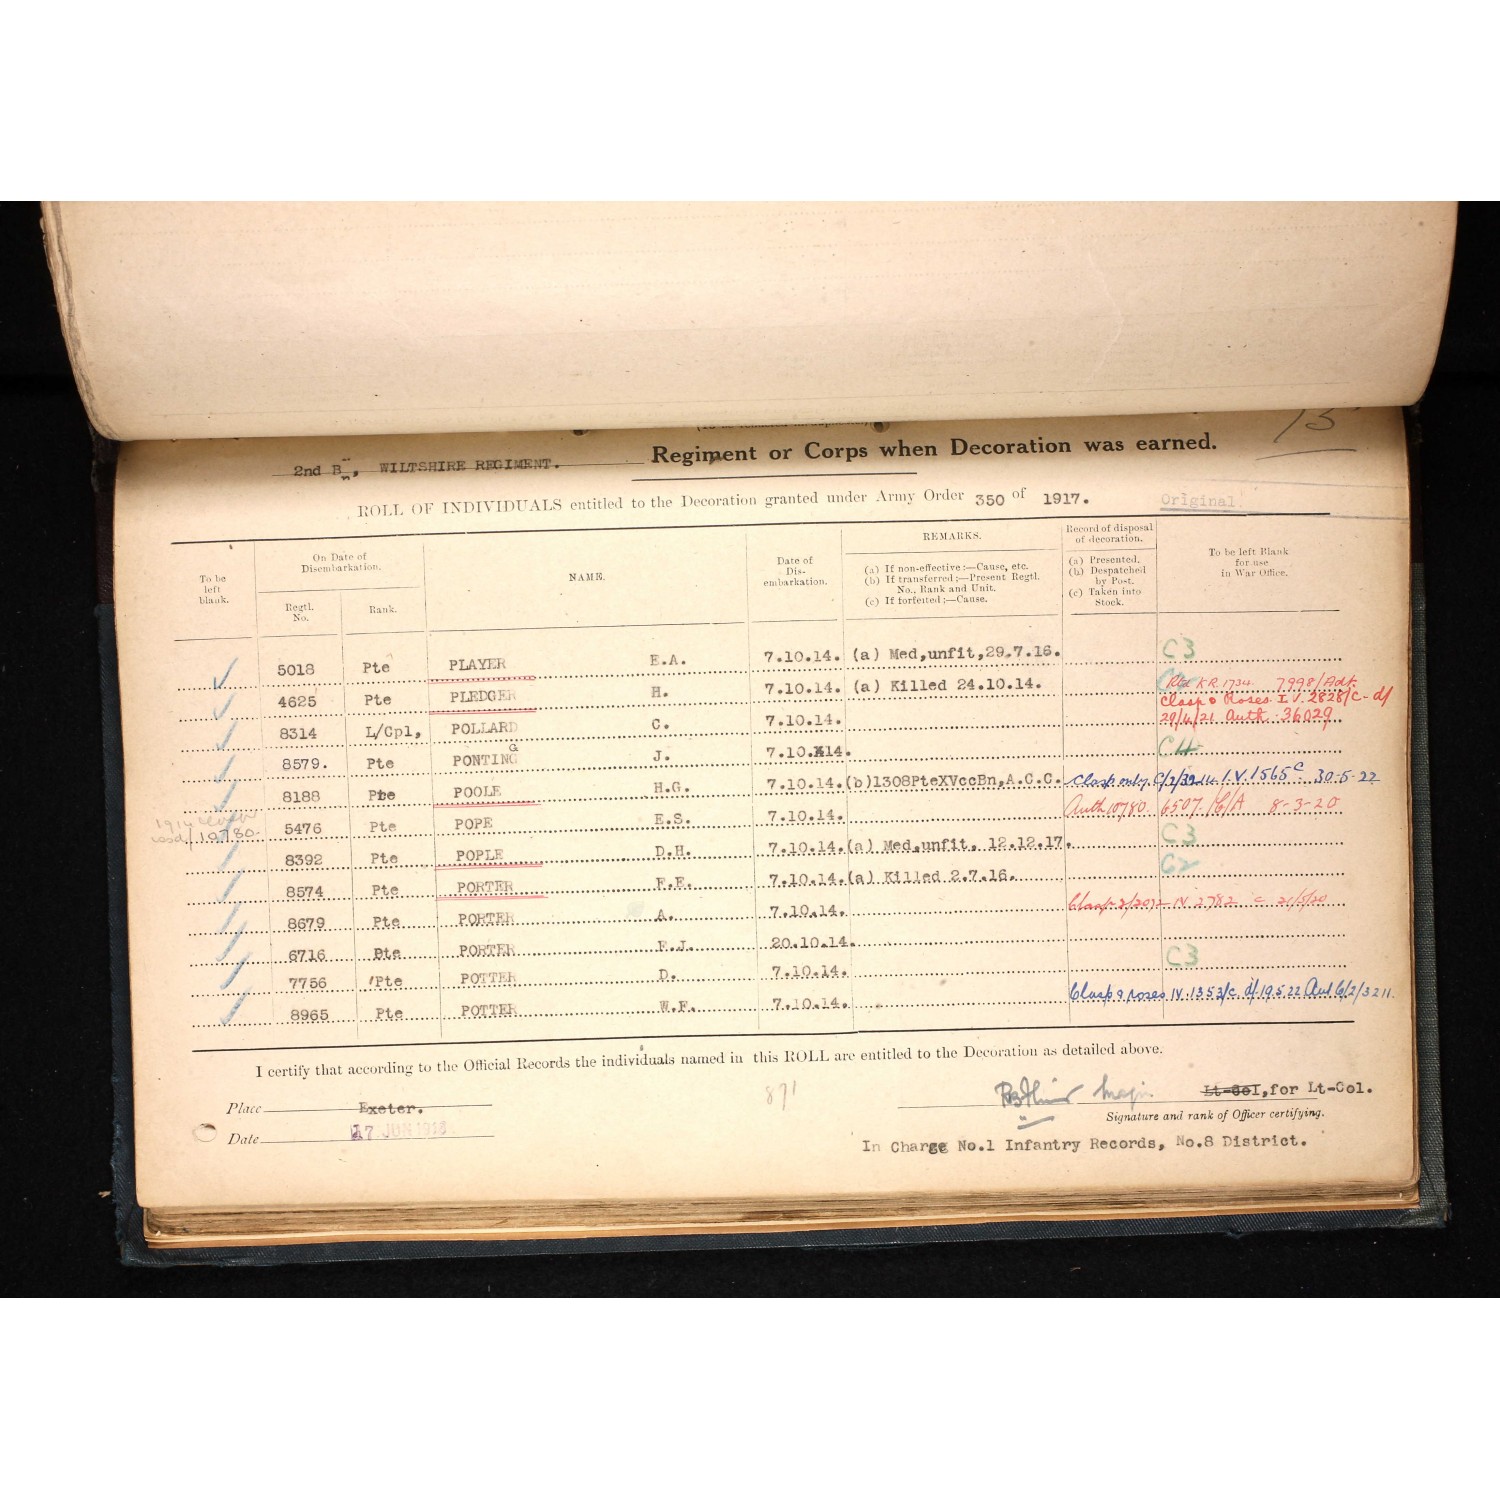 73
2nd Bn, WILTSHIRE REGIMENT. Regiment or Corps when Decoration was earned.
ROLL OF INDIVIDUALS entitled to the Decoration granted under Army Order 350 of 1917. Original
To be left blank.
On Date of Disembarkation.
Regtl. No.
Rank.
NAME.
Date of Dis-embarkation.
REMARKS.
(a) If non-effective:—Cause, etc.
(b) If transferred:—Present Regtl. No., Rank and Unit.
(c) If forfeited:—Cause.
Record of disposal of decoration.
(a) Presented.
(b) Despatched by Post.
(c) Taken into Stock.
To be left Blank for use in War Office.
5018 Pte PLAYER E.A. 7.10.14. (a) Med,unfit,29.7.16. C3
4625 Pte PLEDGER H. 7.10.14. (a) Killed 24.10.14. KR 1734 7998/Adt.
8314 L/Cpl, POLLARD C. 7.10.14. Clasp & Roses I.V. 2828/C - d/ 29/4/21 Auth 36029
8579. Pte PONTING J. 7.10.14. C4
8188 Pte POOLE H.G. 7.10.14. (b)1308PteXVccBn,A.C.C. Clasp only I.V.1565c 30-5-22
1914 10780. 5476 Pte POPE E.S. 7.10.14. Auth 10780. 6507 8-3-20
8392 Pte POPLE D.H. 7.10.14. (a) Med.unfit, 12.12.17. C3
8574 Pte PORTER F.E. 7.10.14. (a) Killed 2.7.16. C2
8679 Pte PORTER A. 7.10.14. Clasp IV 2782 c 21/5/20
6716 Pte PORTER F.J. 20.10.14.
7756 Pte POTTER D. 7.10.14. C3
8965 Pte POTTER W.F. 7.10.14. Clasp & roses IV.1353/c d/19.5.22 Aut C/2/3211.
I certify that according to the Official Records the individuals named in this ROLL are entitled to the Decoration as detailed above.
Place Exeter. 871 Major Lt-Col, for Lt-Col.
Signature and rank of Officer certifying.
Date 17 JUN 1918
In Charge No.1 Infantry Records, No.8 District.